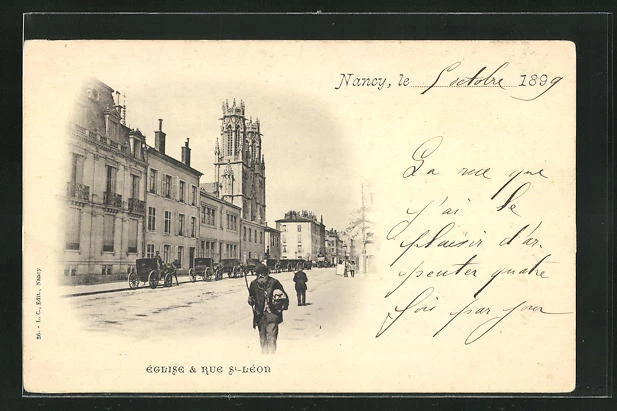 Nancy, le 5 octobre 1899
La rue que
j'ai le
plaisir d'ar-
penter quatre
fois par jour
ÉGLISE & RUE St-LÉON
26. - L. C., Edit., Nancy